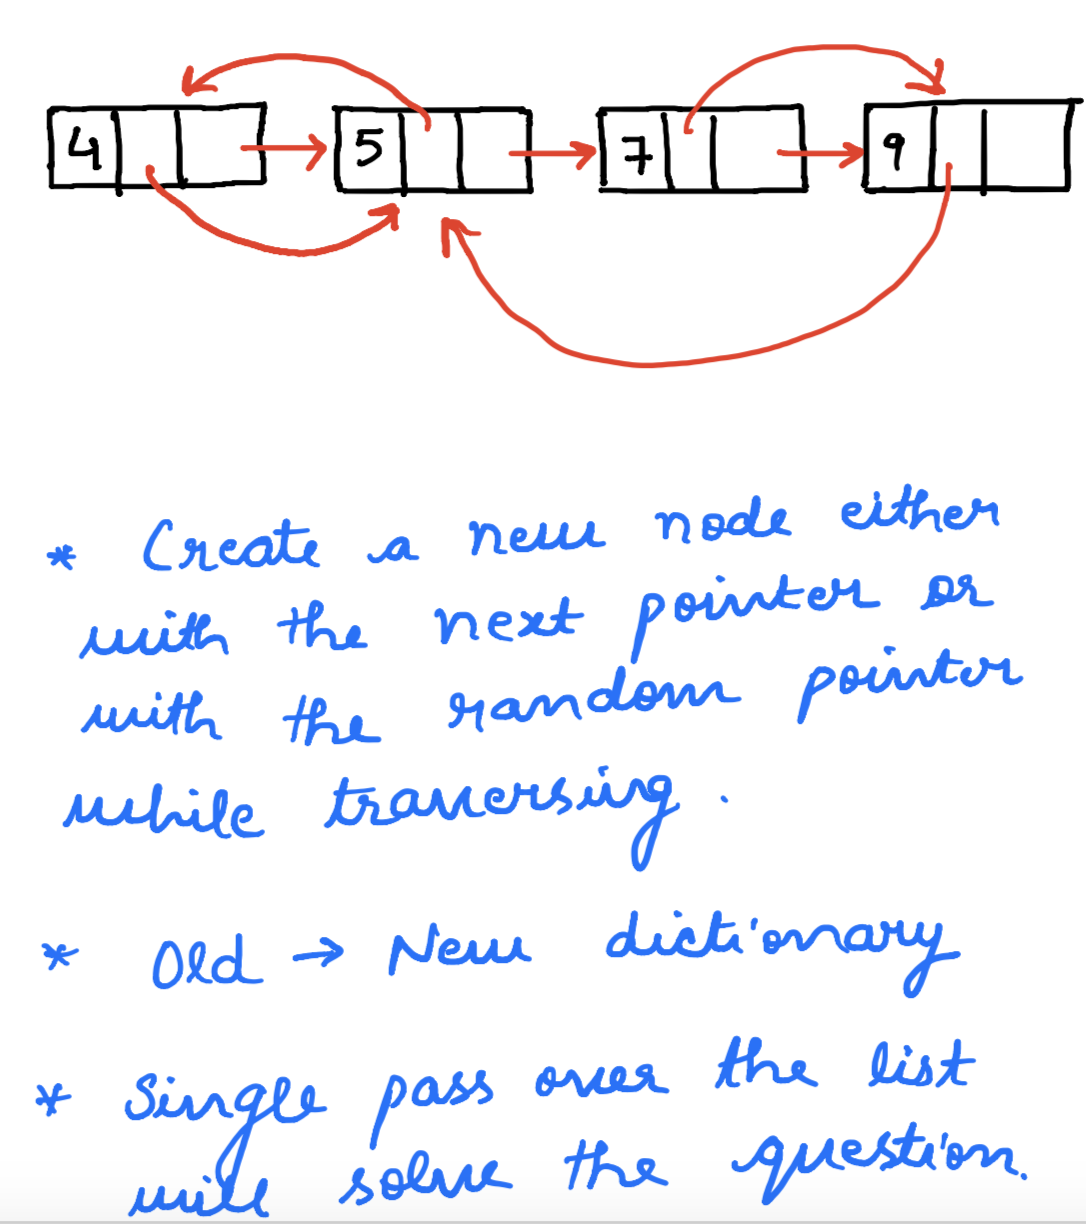 4 5 7 9
* Create a new node either
with the next pointer or
with the random pointer
while traversing.
* Old → New dictionary
* Single pass over the list
will solve the question.